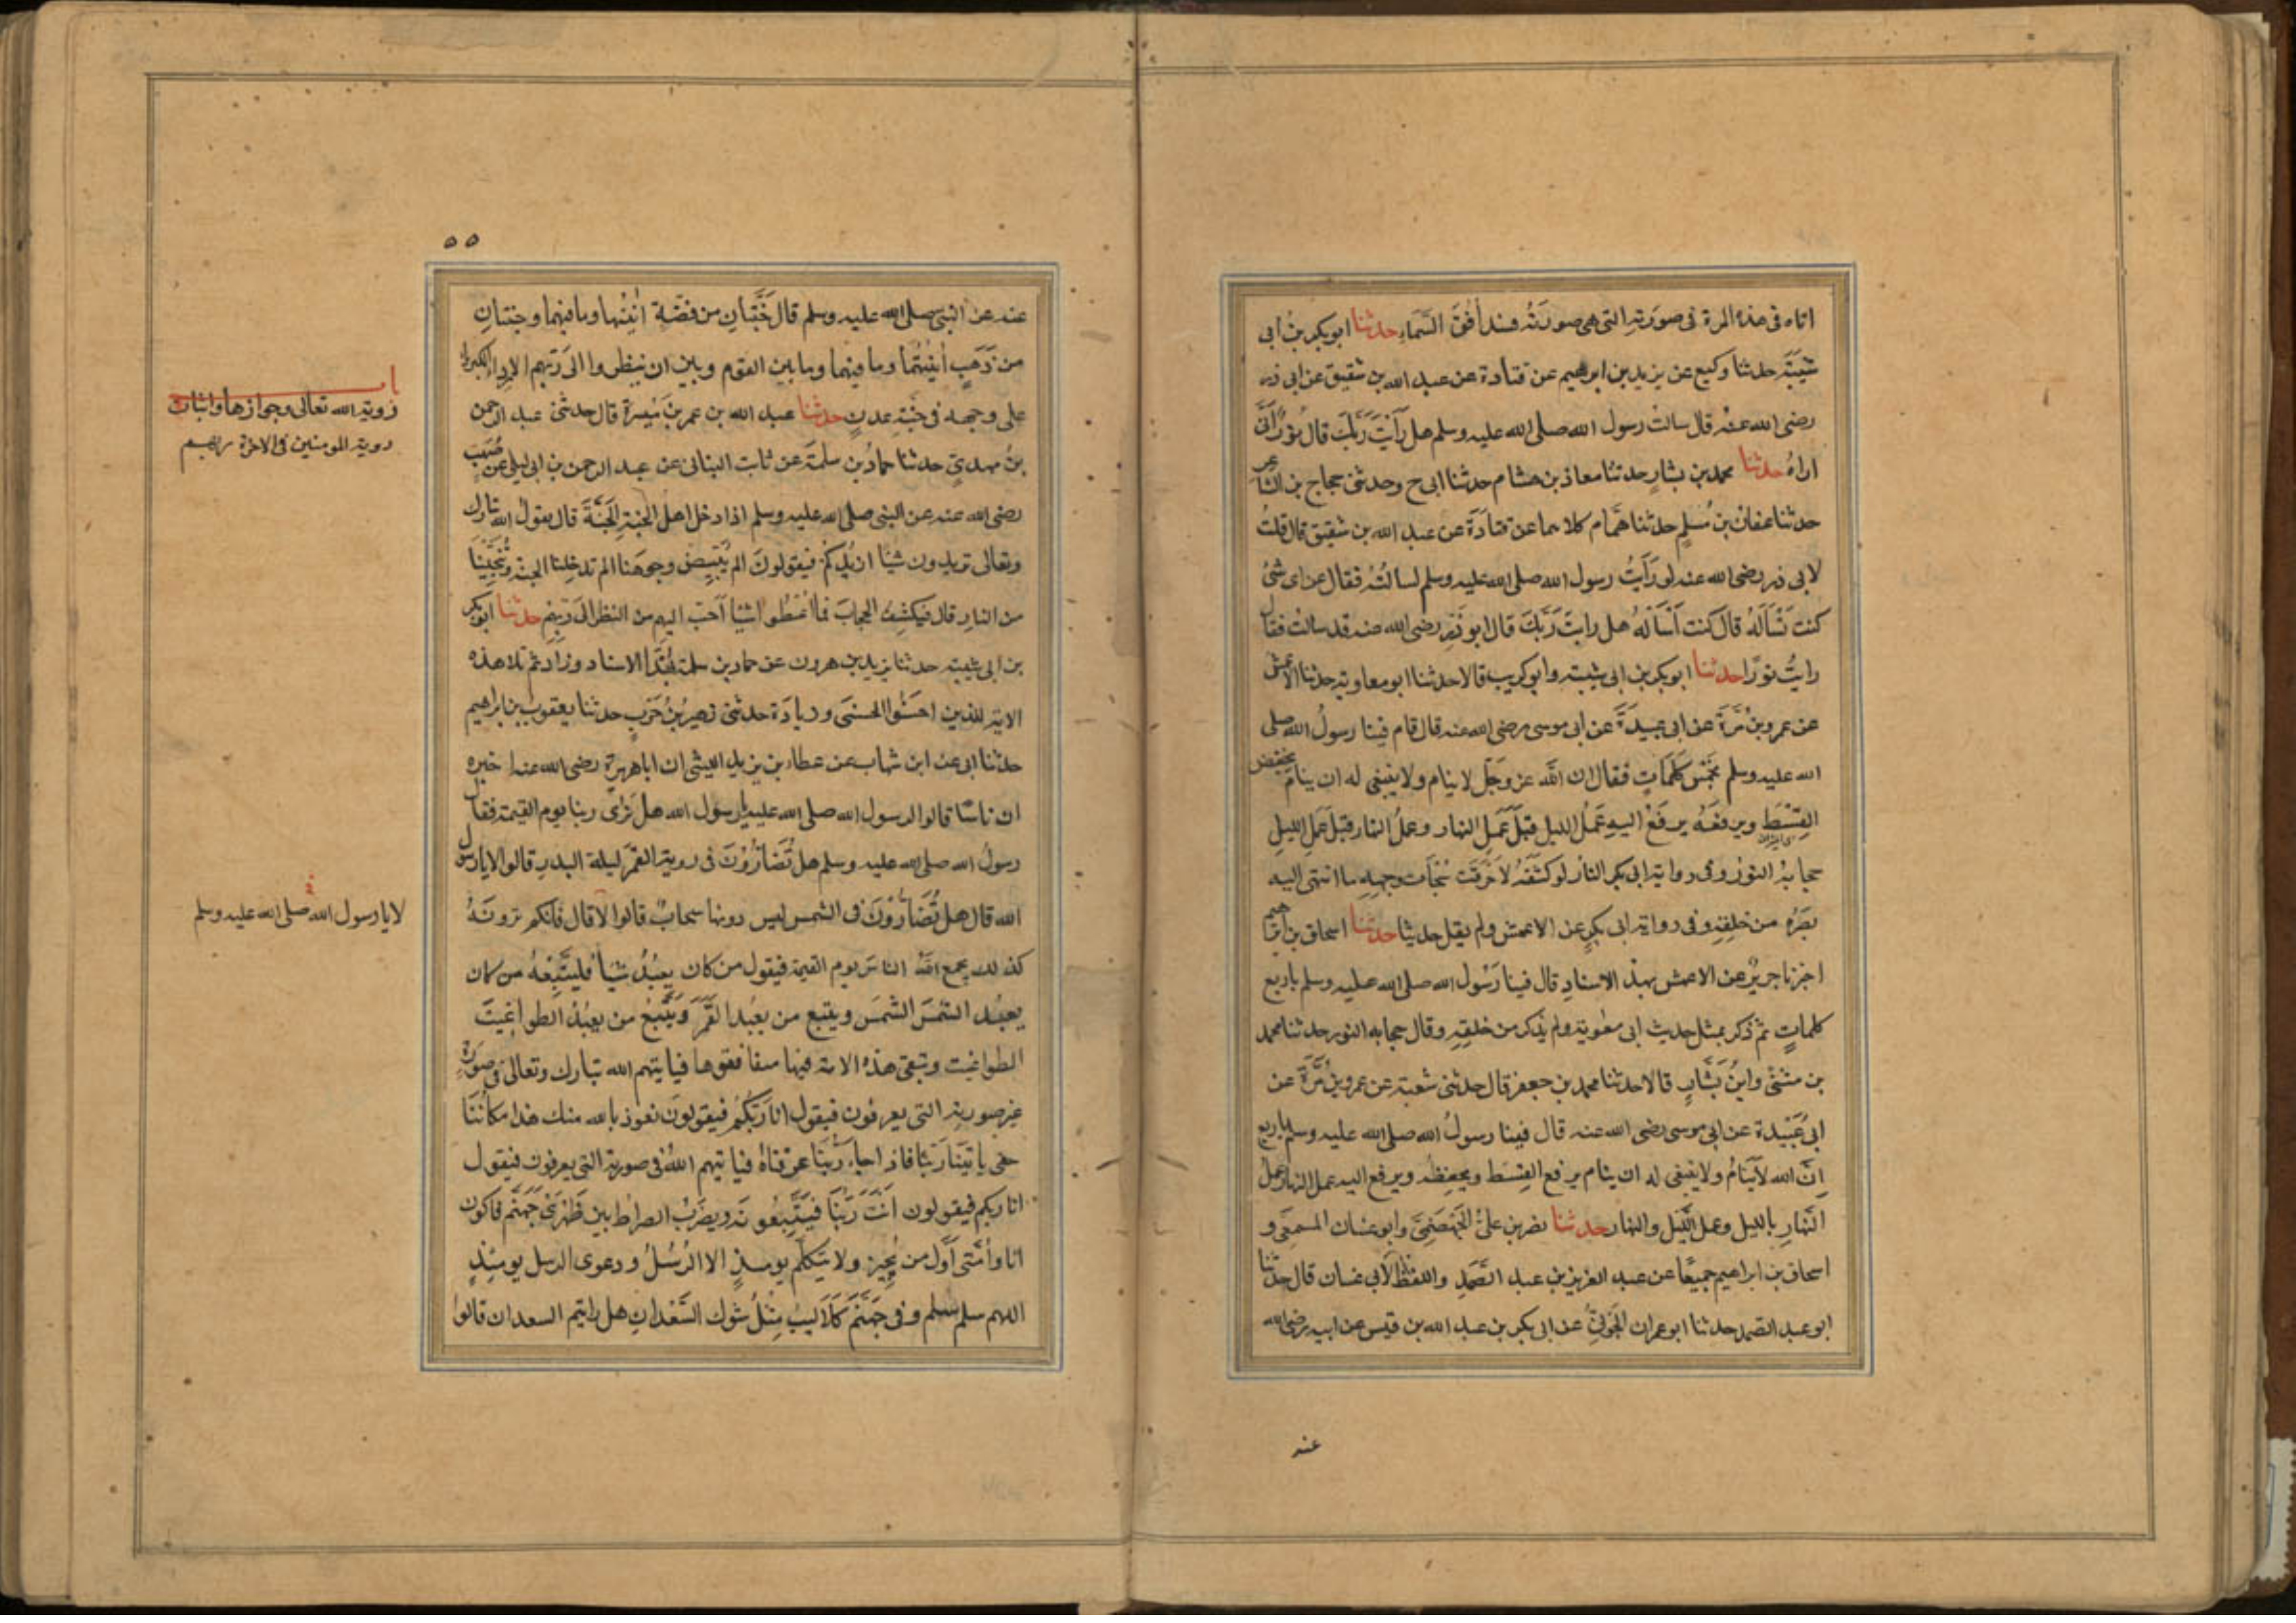 اتاه فى هذه المرة فى صورته التى هى صورته فسد أفق السماء حدثنا ابو بكر بن ابى
شيبة حدثنا وكيع عن يزيد بن ابرهيم عن قتادة عن عبد الله بن شقيق عن ابى ذر
رضى الله عنه قال سالت رسول الله صلى الله عليه وسلم هل رأيت ربك قال نور أنى
اراه حدثنا محمد بن بشار حدثنا معاذ بن هشام حدثنا ابى ح وحدثنى حجاج بن الشاعر
حدثنا عفان بن مسلم حدثنا همام كلاهما عن قتادة عن عبد الله بن شقيق قال قلت
لابى ذر رضى الله عنه لو رأيت رسول الله صلى الله عليه وسلم لسالته فقال عن اى شئ
كنت تسأله قال كنت أسأله هل رايت ربك قال ابو ذر رضى الله عنه قد سالت فقال
رايت نورا حدثنا ابو بكر بن ابى شيبة وابو كريب قالا حدثنا ابو معاوية حدثنا الاعمش
عن عمرو بن مرة عن ابى عبيدة عن ابى موسى رضى الله عنه قال قام فينا رسول الله صلى
الله عليه وسلم بخمس كلمات فقال ان الله عز وجل لا ينام ولا ينبغى له ان ينام يخفض
القسط ويرفعه يرفع اليه عمل الليل قبل عمل النهار وعمل النهار قبل عمل الليل
حجابه النور وفى رواية ابى بكر النار لو كشفه لاحرقت سبحات وجهه ما انتهى اليه
بصره من خلقه وفى رواية ابى بكر عن الاعمش ولم يقل حدثنا حدثنا اسحاق بن ابراهيم
اخبرنا جرير عن الاعمش بهذ الاسناد قال فينا رسول الله صلى الله عليه وسلم باربع
كلمات ثم ذكر بمثل حديث ابى معوية ولم يذكر من خلقه وقال حجابه النور حدثنا محمد
بن مثنى وابن بشار قالا حدثنا محمد بن جعفر قال حدثنى شعبة عن عمرو بن مرة عن
ابى عبيدة عن ابى موسى رضى الله عنه قال فينا رسول الله صلى الله عليه وسلم باربع
ان الله لا ينام ولا ينبغى له ان ينام يرفع القسط ويخفظه ويرفع اليه عمل النهار عمل
النهار بالليل وعمل الليل والنهار حدثنا نصر بن على الجهضمى وابو غسان المسمعى و
اسحاق بن ابراهيم جميعا عن عبد العزيز بن عبد الصمد واللفظ لابى غسان قال حدثنا
ابو عبد الصمد حدثنا ابو عمران الجونى عن ابى بكر بن عبد الله بن قيس عن ابيه رضى الله
عنه
٥٥
عنه عن النبى صلى الله عليه وسلم قال جنتان من فضة انيتها وما فيهما وجنتان
من ذهب أنيتهما وما فيهما وما بين القوم وبين ان ينظروا الى ربهم الا رداء الكبرياء
على وجهه فى جنة عدن حدثنا عبد الله بن عمر بن ميسرة قال حدثنى عبد الرحمن
بن مهدى حدثنا حماد بن سلمة عن ثابت البنانى عن عبد الرحمن بن ابى ليلى عن صهيب
رضى الله عنه عن النبى صلى الله عليه وسلم اذا دخل اهل الجنة الجنة قال يقول الله تبارك
وتعالى تريدون شيئا ازيدكم فيقولون الم يبيض وجوهنا الم تدخلنا الجنة وتنجينا
من النار قال فيكشف الحجاب فما اعطوا شيئا أحب اليهم من النظر الى ربهم حدثنا ابو بكر
بن ابى شيبة حدثنا يزيد بن هرون عن حماد بن سلمة بهذا الاسناد وزاد ثم تلا هذه
الاية للذين احسنوا الحسنى وزيادة حدثنى زهير بن حرب حدثنا يعقوب بن ابراهيم
حدثنا ابى عن ابن شهاب عن عطاء بن يزيد الليثى ان ابا هريرة رضى الله عنه اخبره
ان ناسا قالوا لرسول الله صلى الله عليه يا رسول الله هل نرى ربنا يوم القيمة فقال
رسول الله صلى الله عليه وسلم هل تضارون فى روية القمر ليلة البدر قالوا لا يا رسول
الله قال هل تضارون فى الشمس ليس دونها سحاب قالوا لا قال فانكم ترونه
كذلك يجمع الله الناس يوم القيمة فيقول من كان يعبد شيئا فليتبعه من كان
يعبد الشمس الشمس ويتبع من يعبد القمر ويتبع من يعبد الطواغيت
الطواغيت وتبقى هذه الامة فيها منافقوها فياتيهم الله تبارك وتعالى فى صورة
غير صورته التى يعرفون فيقول انا ربكم فيقولون نعوذ بالله منك هذا مكاننا
حتى ياتينا ربنا فاذا جاء ربنا عرفناه فياتيهم الله فى صورته التى يعرفون فيقول
انا ربكم فيقولون أنت ربنا فيتبعونه ويضرب الصراط بين ظهرى جهنم فاكون
انا وأمتى أول من يجيز ولا يتكلم يومئذ الا الرسل ودعوى الرسل يومئذ
اللهم سلم سلم وفى جهنم كلاليب مثل شوك السعدان هل رايتم السعدان قالوا
باب
روية الله تعالى وجوازها واثبات
روية المومنين فى الاخرة ربهم
لا يا رسول الله صلى الله عليه وسلم